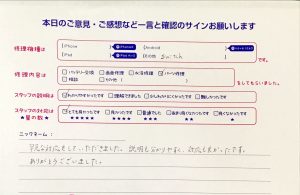 本日のご意見・ご感想など一言と確認のサインお願いします
修理機種は
iPhone
Android
iPad
その他 switch
です。
修理内容は
バッテリー交換 画面修理 水没修理 パーツ修理
相談 その他
をしてもらいました。
スタッフの説明は
わかりやすかった 理解できました 少しわかりにくかった 難しかった
スタッフの対応は
とても良かった 良かった 普通でした 悪かった
★星の数★
★★★★★ ★★★★ ★★★ ★★ ★
ニックネーム:
早急な対応をしていただきました。説明も分かりやすく、対応も良かったです。
ありがとうございました。